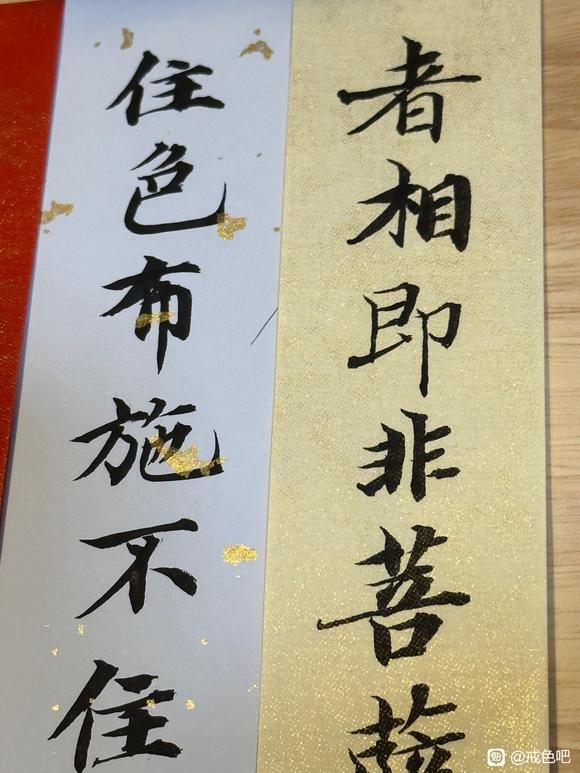 者相即非菩薩
住色布施不住
@戒色吧